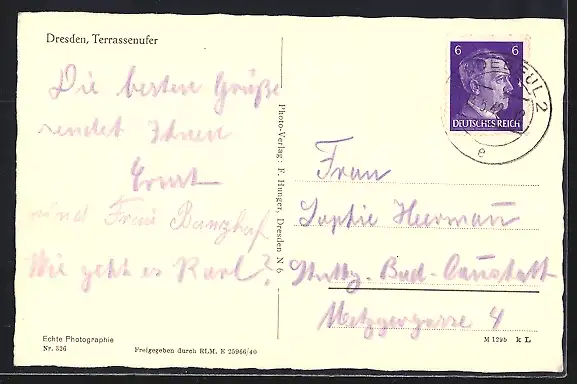 Dresden, Terrassenufer
Die besten Grüße
sendet Ihnen
Ernst
und Frau Banzhaf
Wie geht es Karl?
Echte Photographie
Nr. 326
Freigegeben durch RLM. E 25966/40
Photo-Verlag: F. Hunger, Dresden N 6
6 6
DEUTSCHES REICH
2
e
Frau
Sophie Heermann
Stuttg.-Bad-Cannstatt
Metzgergasse 4
M 1295 k L